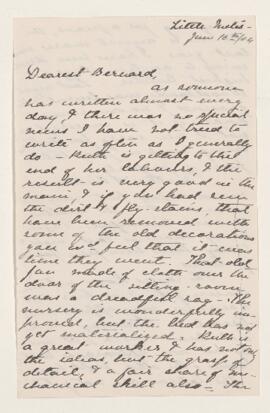 Little Metis -
June 10th/04
Dearest Bernard,
as someone
has written almost every
day, & there was no special
news I have not tried to
write as often as I generally
do - Ruth is getting to the
end of her labours, & the
result is very good in the
main, & if you had seen
the dirt & fly-stains that
have been removed with
some of the old decorations
you wd feel that it was
time they went. That old
fan made of cloth over the
door of the sitting-room
was a dreadful rag - The
nursery is wonderfully im-
proved, but the bed has not
yet materialized. Ruth is
a great worker & has not only
the ideas, but the grasp of
detail, & a fair share of me-
chanical skill also - The